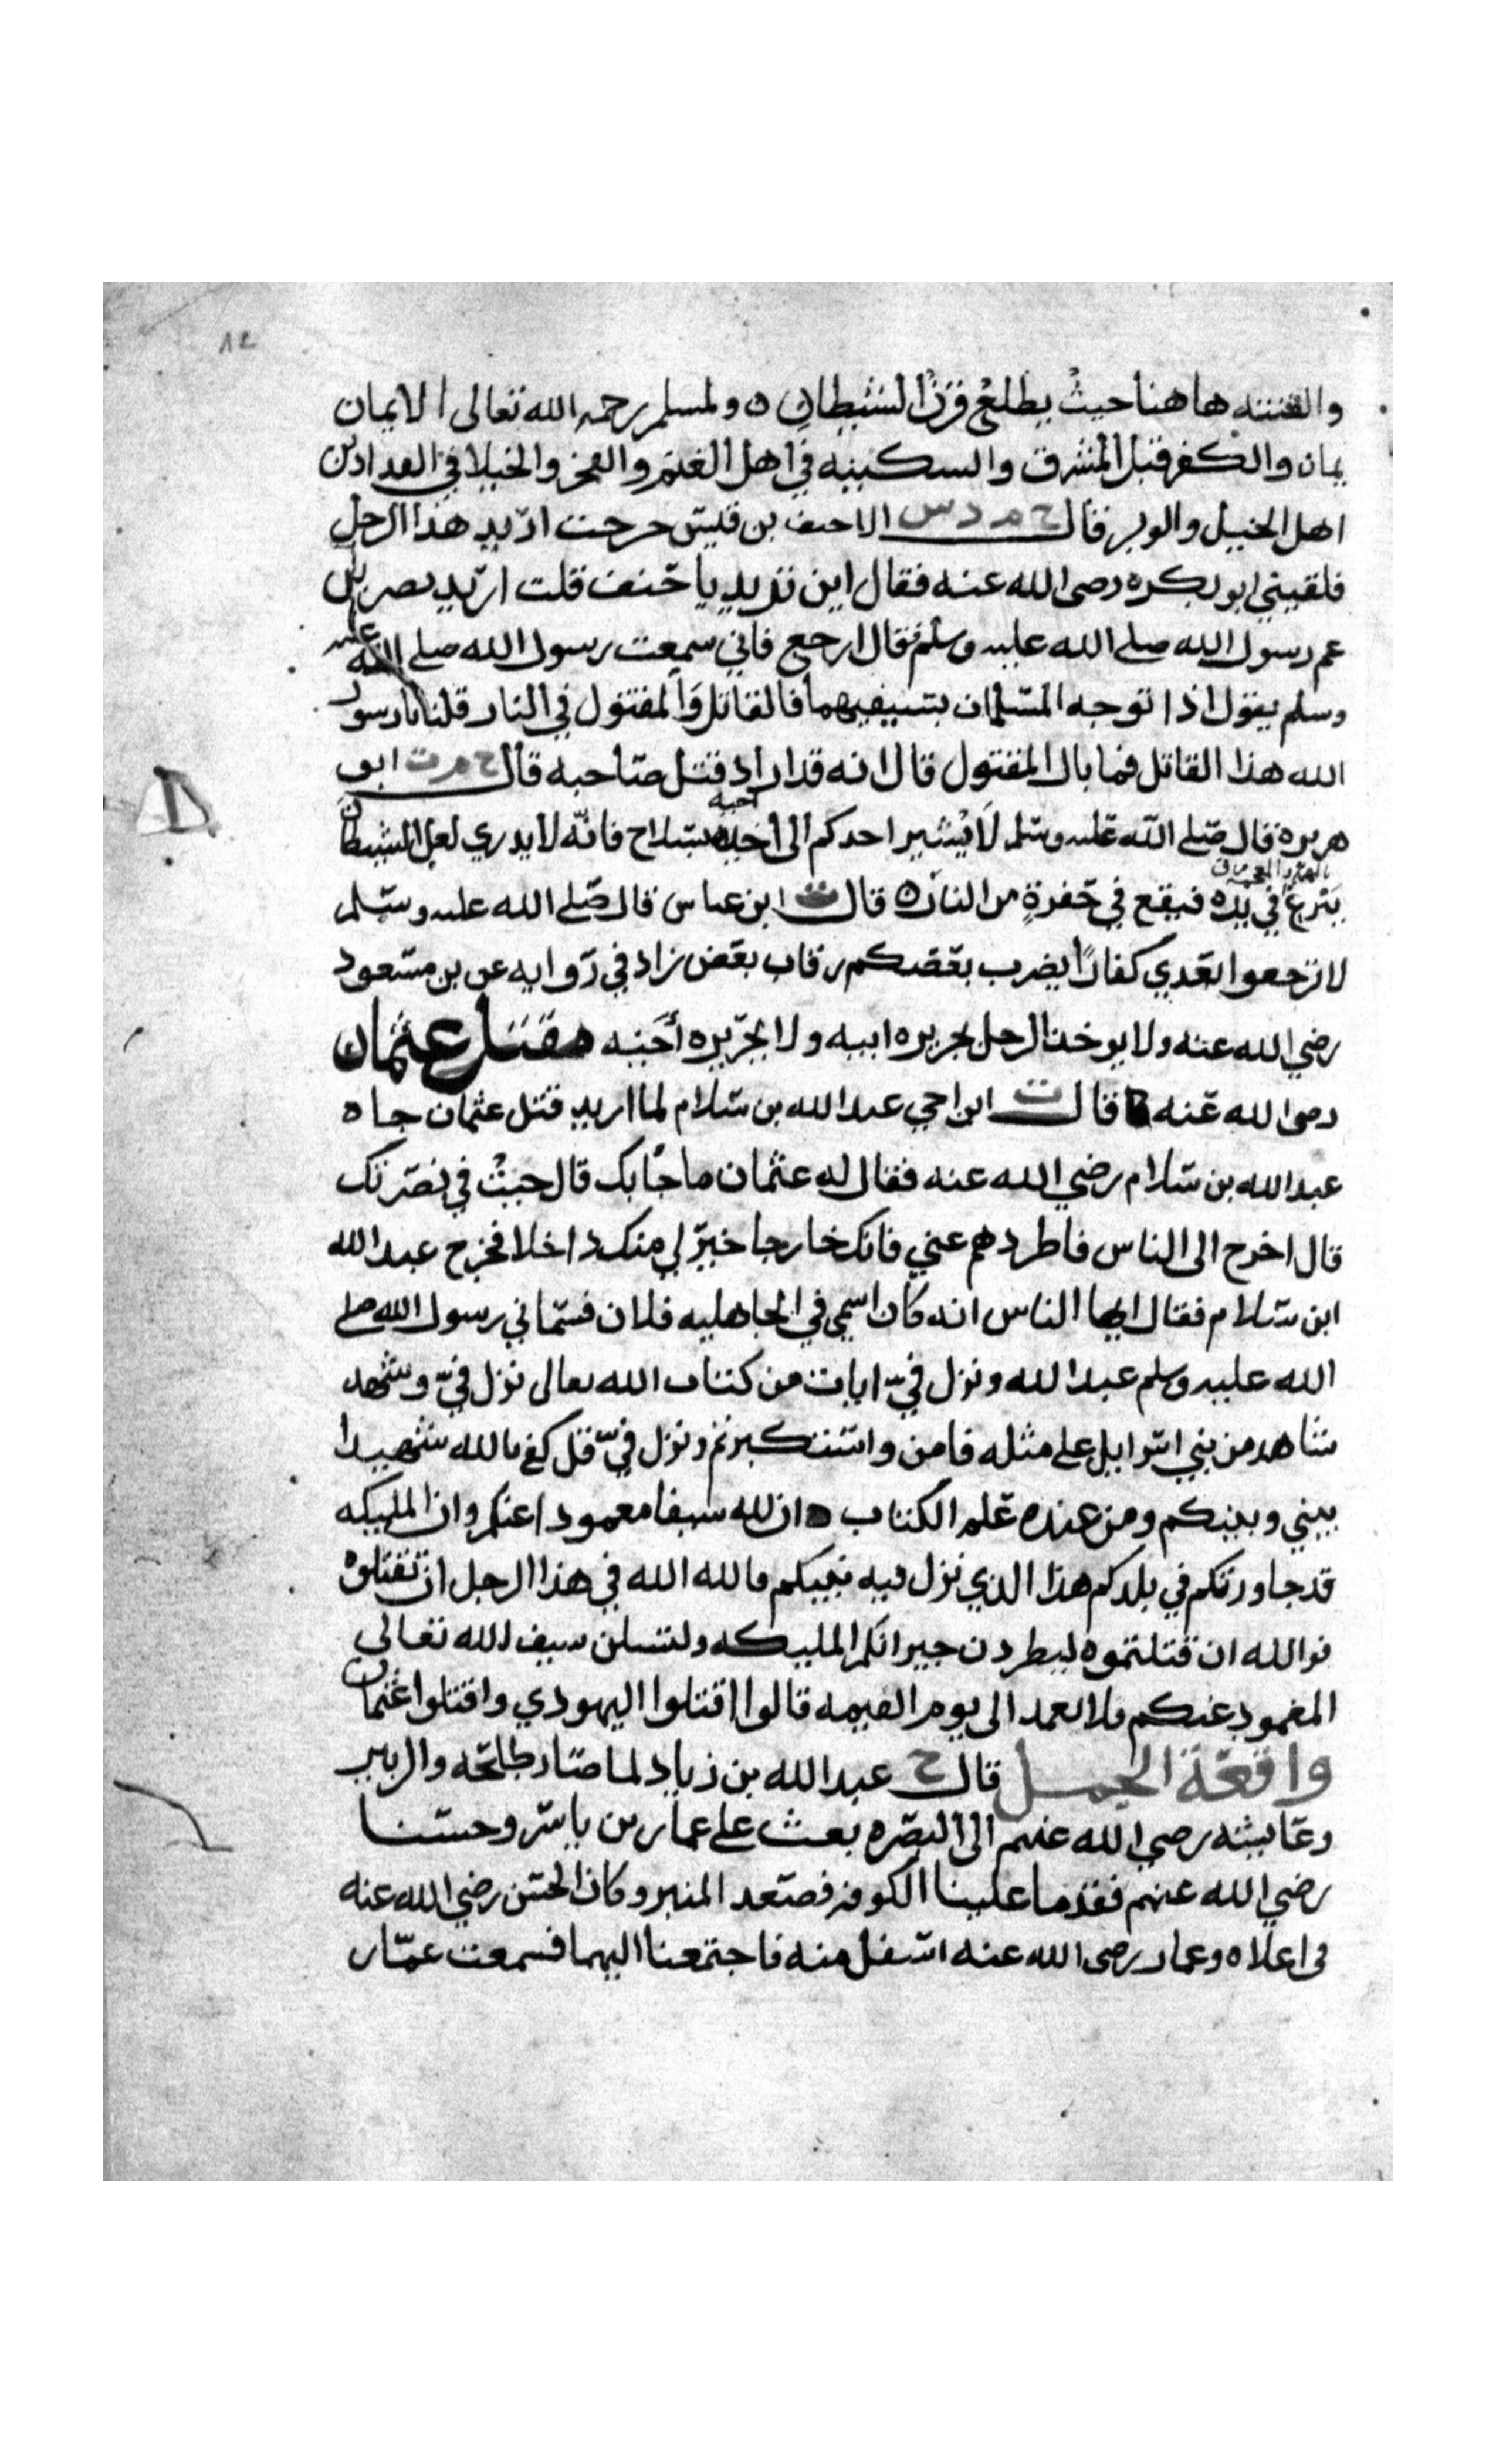 ١٢
والفتنه هاهنا حيث يطلع قرن الشيطان ٥ ولمسلم رحمه الله تعالى الايمان
يمان والكفر قبل المشرق والسكينه في اهل الغنم والفخر والخيلا في الفدادين
اهل الخيل والوبر قال خ م د س الاحنف بن قيس خرجت اريد هذا الرجل
فلقيني ابو بكره رضى الله عنه فقال اين تريد يا حنف قلت اريد نصر بن
عم رسول الله صلى الله عليه وسلم فقال ارجع فاني سمعت رسول الله صلى الله عليه
وسلم يقول اذا توجه المسلمان بسيفيهما فالقاتل والمقتول في النار قلنا يا رسول
الله هذا القاتل فما بال المقتول قال انه قد اراد قتل صاحبه قال خ م ت ابو
هريره قال صلى الله عليه وسلم لا يشير احدكم الى أخيه بسلاح فانه لا يدري لعل الشيطان
ينزغ في يده فيقع في حفرةٍ من النار ٥ قال ت ابن عباس قال صلى الله عليه وسلم
لا ترجعوا بعدي كفارًا يضرب بعضكم رقاب بعض زاد في روايه عن بن مسعود
رضي الله عنه ولا يوخذ الرجل بجريره ابيه ولا بجريره أخيه مقتل عثمان
رضى الله عنه قال ت ابن اخي عبد الله بن سلام لما اريد قتل عثمان جاه
عبد الله بن سلام رضي الله عنه فقال له عثمان ما جابك قال جيتُ في نصرتك
قال اخرج الى الناس فاطردهم عني فانك خارجا خيرٌ لي منك داخلا فخرج عبد الله
ابن سلام فقال ايها الناس انه كان اسمي في الجاهليه فلان فسماني رسول الله صلى
الله عليه وسلم عبد الله ونزل فيّ ايات من كتاب الله تعالى نزل فيّ وشهد
شاهد من بني اسرايل على مثله فامن واستكبرتم ونزل فيّ قل كفى بالله شهيدا
بيني وبينكم ومن عنده علم الكتاب ٥ ان لله سيفا مغمودا عنكم وان المليكه
قد جاورتكم في بلدكم هذا الذي نزل فيه نبيكم فالله الله في هذا الرجل ان تقتلوه
فوالله ان قتلتموه ليطردن جيرانكم المليكه ولتسلن سيف الله تعالى
المغمود عنكم فلا يغمد الى يوم القيمه قالوا اقتلوا اليهودي واقتلوا عثمان
واقعة الجمل قال خ عبد الله بن زياد لما صار طلحه والزبير
وعايشه رضي الله عنهم الى البصره بعث علي عمار بن ياسر وحسنا
رضي الله عنهم فقدما علينا الكوفه فصعد المنبر وكان الحسن رضي الله عنه
في اعلاه وعمار رضى الله عنه اسفل منه فاجتمعنا اليهما فسمعت عمار